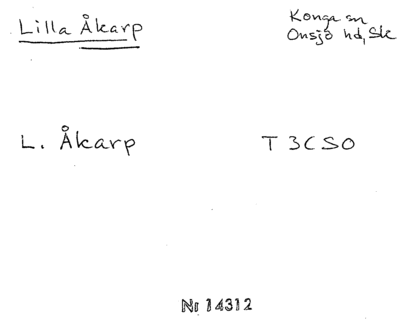 Lilla Åkarp
Konga sn
Onsjö hd, Sk
L. Åkarp T 3CSO
Nr 14312